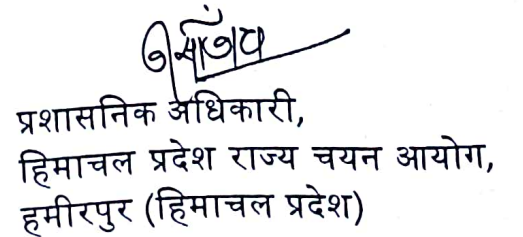 प्रशासनिक अधिकारी,
हिमाचल प्रदेश राज्य चयन आयोग,
हमीरपुर (हिमाचल प्रदेश)